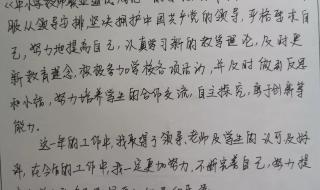 《中小学教师职业道德规范》
服从领导安排坚决拥护中国共产党的领导，严格要求自
己，努力地提高自己，认真学习新的教学理论，及时更
新教育理念，积极参加学校各项活动，并及时做到反思
和小结，努力培养学生的合作交流，自主探究，勇于创新等
能力。
这一年的工作中，我取得了领导、老师及学生的认可及好
评，在今后的工作中，我一定更加努力，不断完善自己，努力提